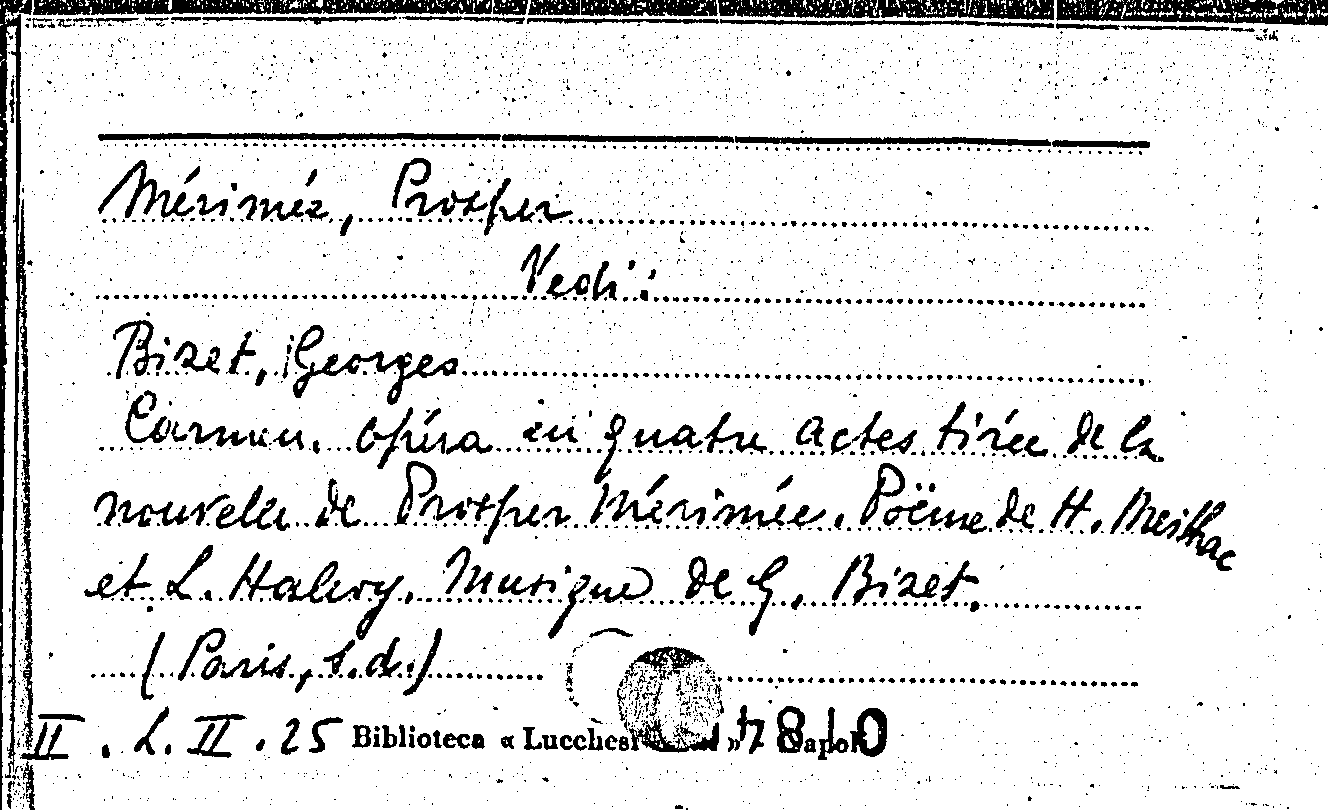 Mérimée, Prosper
Vedi:
Bizet, Georges
Carmen. Opéra en quatre actes tirée de la
nouvelle de Prosper Mérimée. Poëme de H. Meilhac
et L. Halévy. Musique de G. Bizet.
(Paris, s.d.)
II . L. II . 25 Biblioteca « Lucchesi » - Napoli